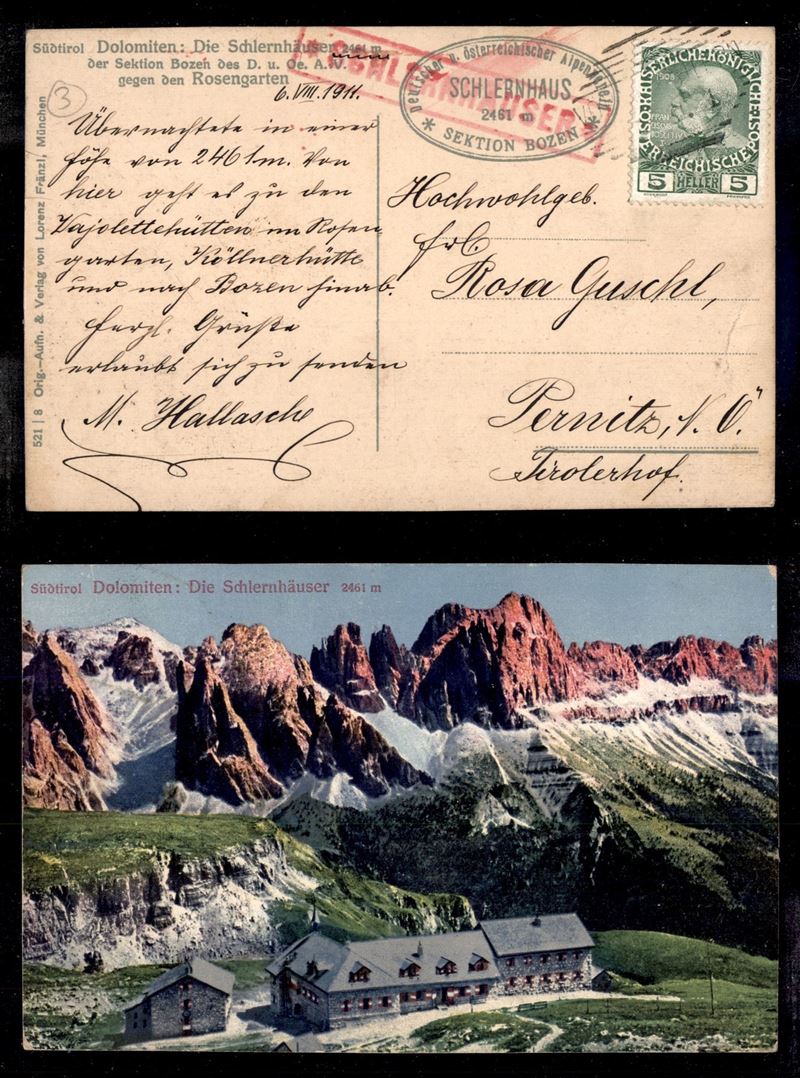 Südtirol Dolomiten: Die Schlernhäuser 2461 m
der Sektion Bozen des D. u. Oe. A. V.
gegen den Rosengarten
3
6.VIII.1911.
Übernachtete in einer
Höhe von 2461m. Von
hier geht es zu den
Vajolettehütten im Rosen
garten, Köllnerhütte
und nach Bozen hinab.
Herzl. Grüße
erlaubt sich zu senden
M. Hallasche
521 | 8 Orig.-Aufn. & Verlag von Lorenz Fränzl, München
SCHLERNHÄUSER
Deutscher u. österreichischer Alpenverein
SCHLERNHAUS
2461 m
* SEKTION BOZEN *
KAISERLICHE KÖNIGLICHE
ÖSTERREICHISCHE POST
1908
FRANZ
IOSEPH I
5 HELLER 5
Hochwohlgeb.
Frl.
Rosa Guschl,
Pernitz, N. Ö.
Tirolerhof.
Südtirol Dolomiten: Die Schlernhäuser 2461 m